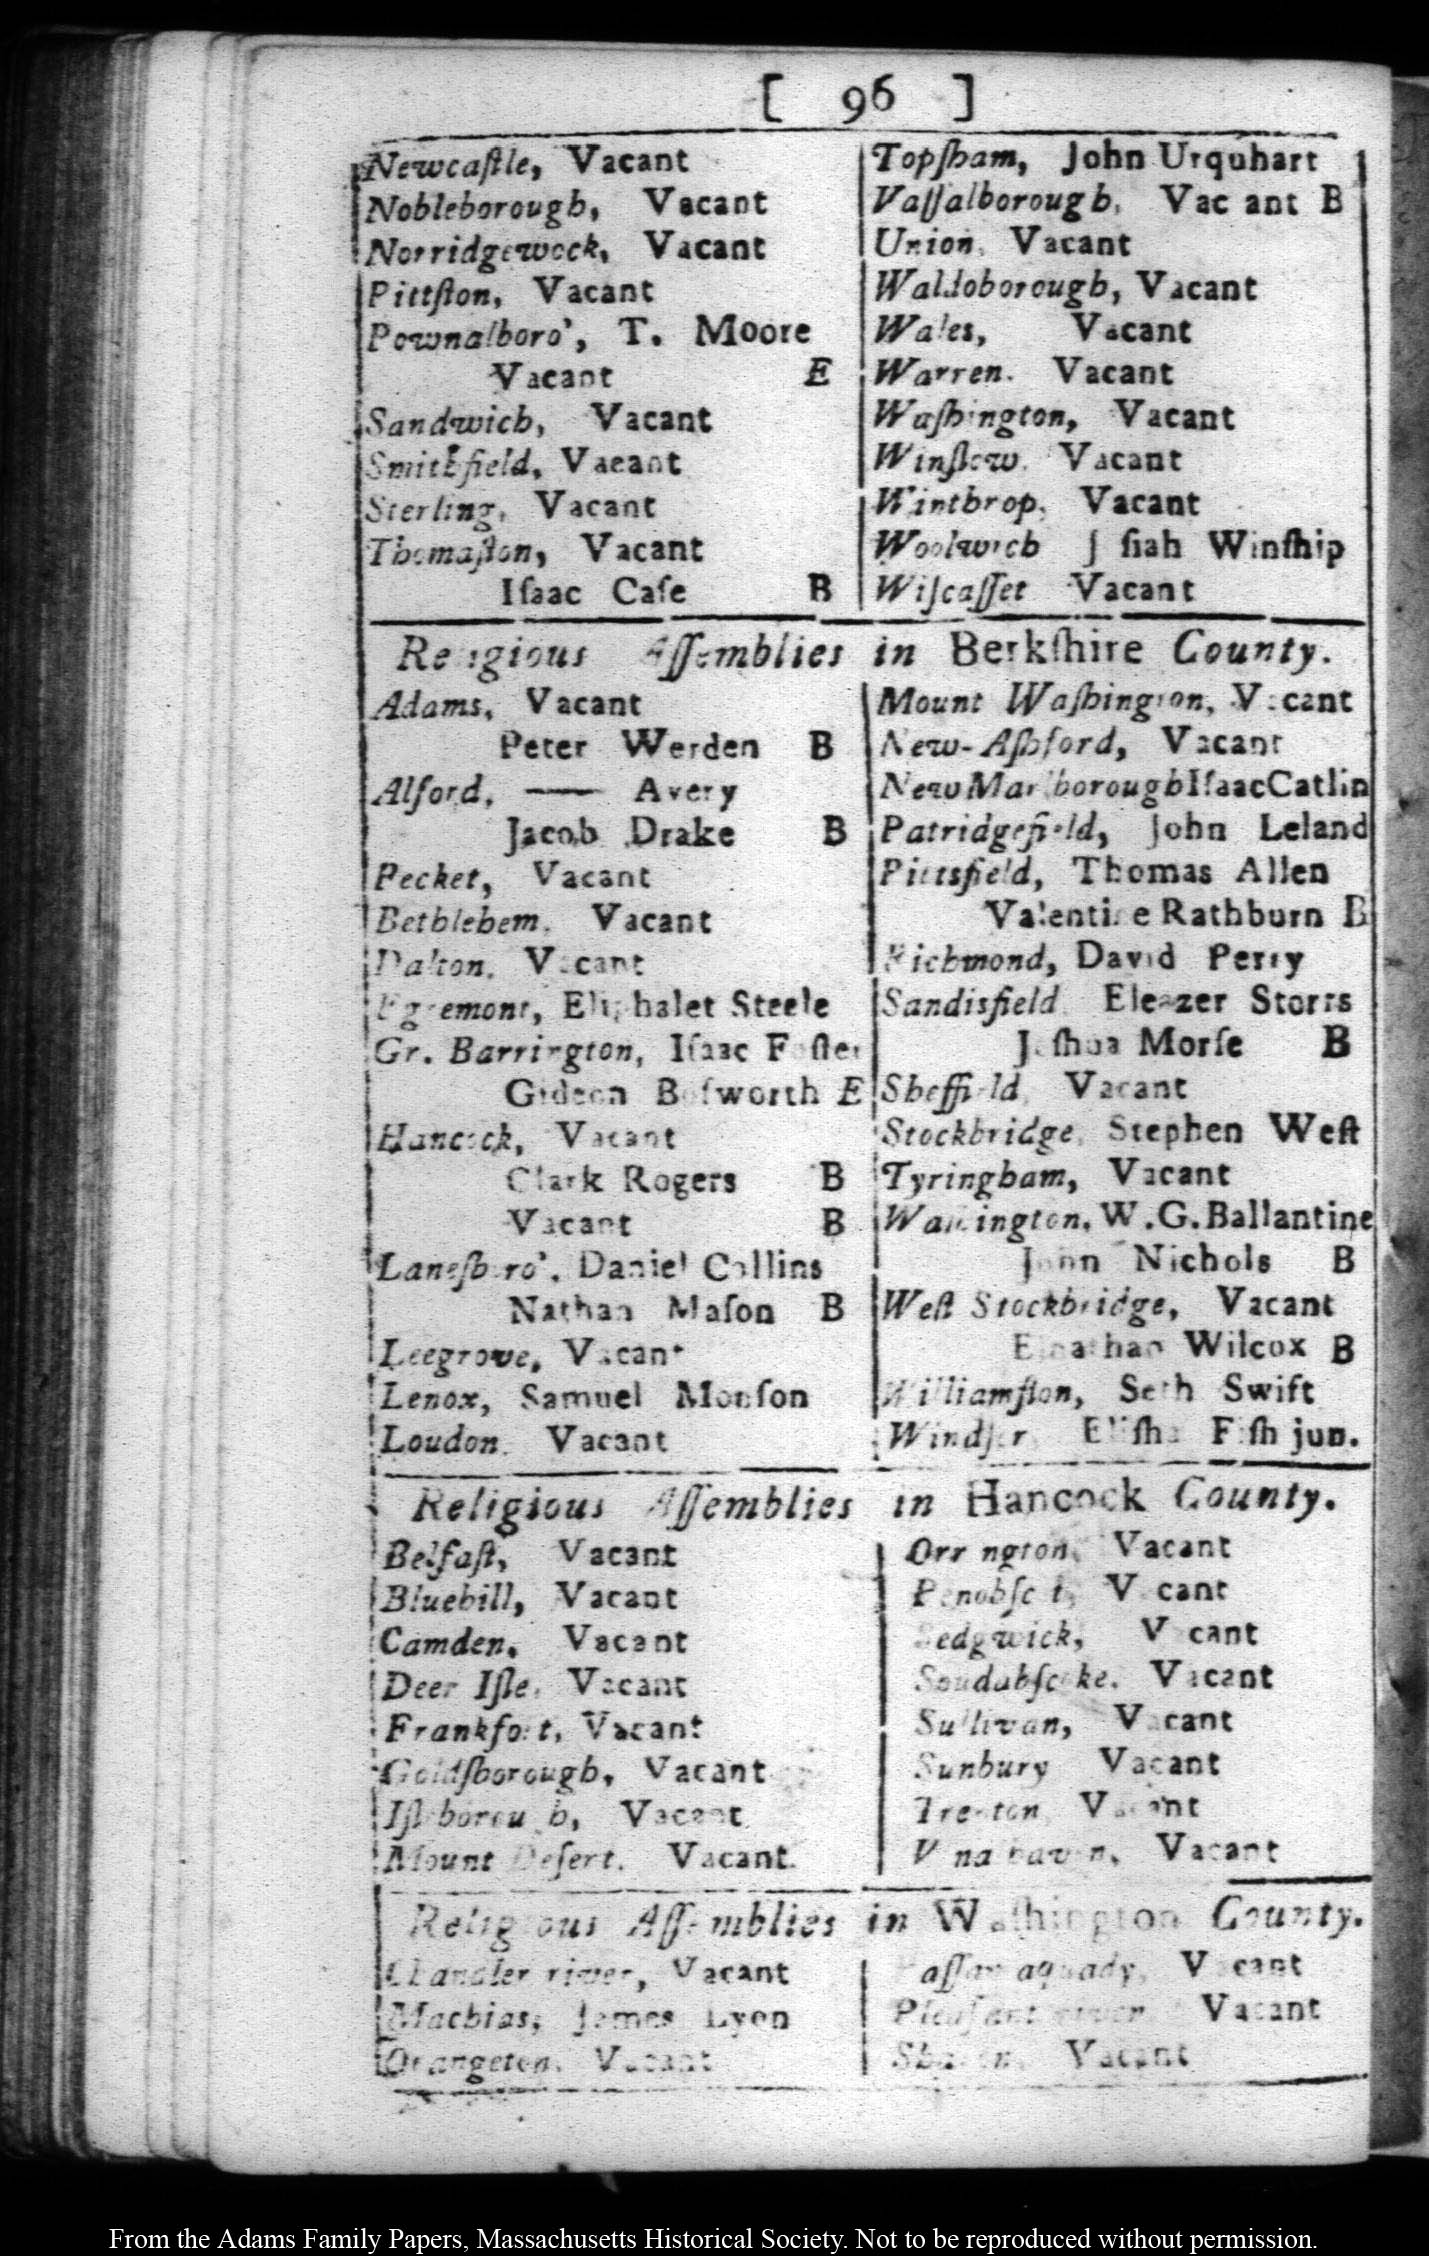 [ 96 ]
Newcaſtle, Vacant
Nobleborough, Vacant
Norridgewock, Vacant
Pittſton, Vacant
Pownalboro', T. Moore
Vacant E
Sandwich, Vacant
Smithfield, Vacant
Sterling, Vacant
Thomaſton, Vacant
Iſaac Caſe B
Topſham, John Urquhart
Vaſſalborough, Vac ant B
Union, Vacant
Waldoborough, Vacant
Wales, Vacant
Warren. Vacant
Waſhington, Vacant
Winſlow. Vacant
Winthrop, Vacant
Woolwich J ſiah Winſhip
Wiſcaſſet Vacant
Religious Aſſemblies in Berkſhire County.
Adams, Vacant
Peter Werden B
Alford, —— Avery
Jacob Drake B
Becket, Vacant
Bethlehem. Vacant
Dalton. Vacant
Egremont, Eliphalet Steele
Gr. Barrington, Iſaac Foſter
Gideon Boſworth E
Hancock, Vacant
Clark Rogers B
Vacant B
Laneſboro', Daniel Collins
Nathan Maſon B
Leegrove, Vacant
Lenox, Samuel Monſon
Loudon. Vacant
Mount Waſhington, Vacant
New-Aſhford, Vacant
NewMarlboroughIſaacCatlin
Patridgefield, John Leland
Pittsfield, Thomas Allen
Valentine Rathburn B
Richmond, David Perry
Sandisfield Eleazer Storrs
Joſhua Morſe B
Sheffield, Vacant
Stockbridge, Stephen Weſt
Tyringham, Vacant
Waſhington, W.G.Ballantine
John Nichols B
Weſt Stockbridge, Vacant
Elnathan Wilcox B
Williamſton, Seth Swift
Windſor, Eliſha Fiſh jun.
Religious Aſſemblies in Hancock County.
Belfaſt, Vacant
Bluehill, Vacant
Camden, Vacant
Deer Iſle, Vacant
Frankfort, Vacant
Goldſborough, Vacant
Iſleborough, Vacant
Mount Deſert. Vacant
Orrington, Vacant
Penobſcot, Vacant
Sedgwick, Vacant
Soudabſcooke. Vacant
Sullivan, Vacant
Sunbury Vacant
Trenton, Vacant
Vinalhaven, Vacant
Religious Aſſemblies in Waſhington County.
Chandler river, Vacant
Machias, James Lyon
Orangeton. Vacant
Paſſamaquady, Vacant
Pleaſant river Vacant
Vacant
From the Adams Family Papers, Massachusetts Historical Society. Not to be reproduced without permission.